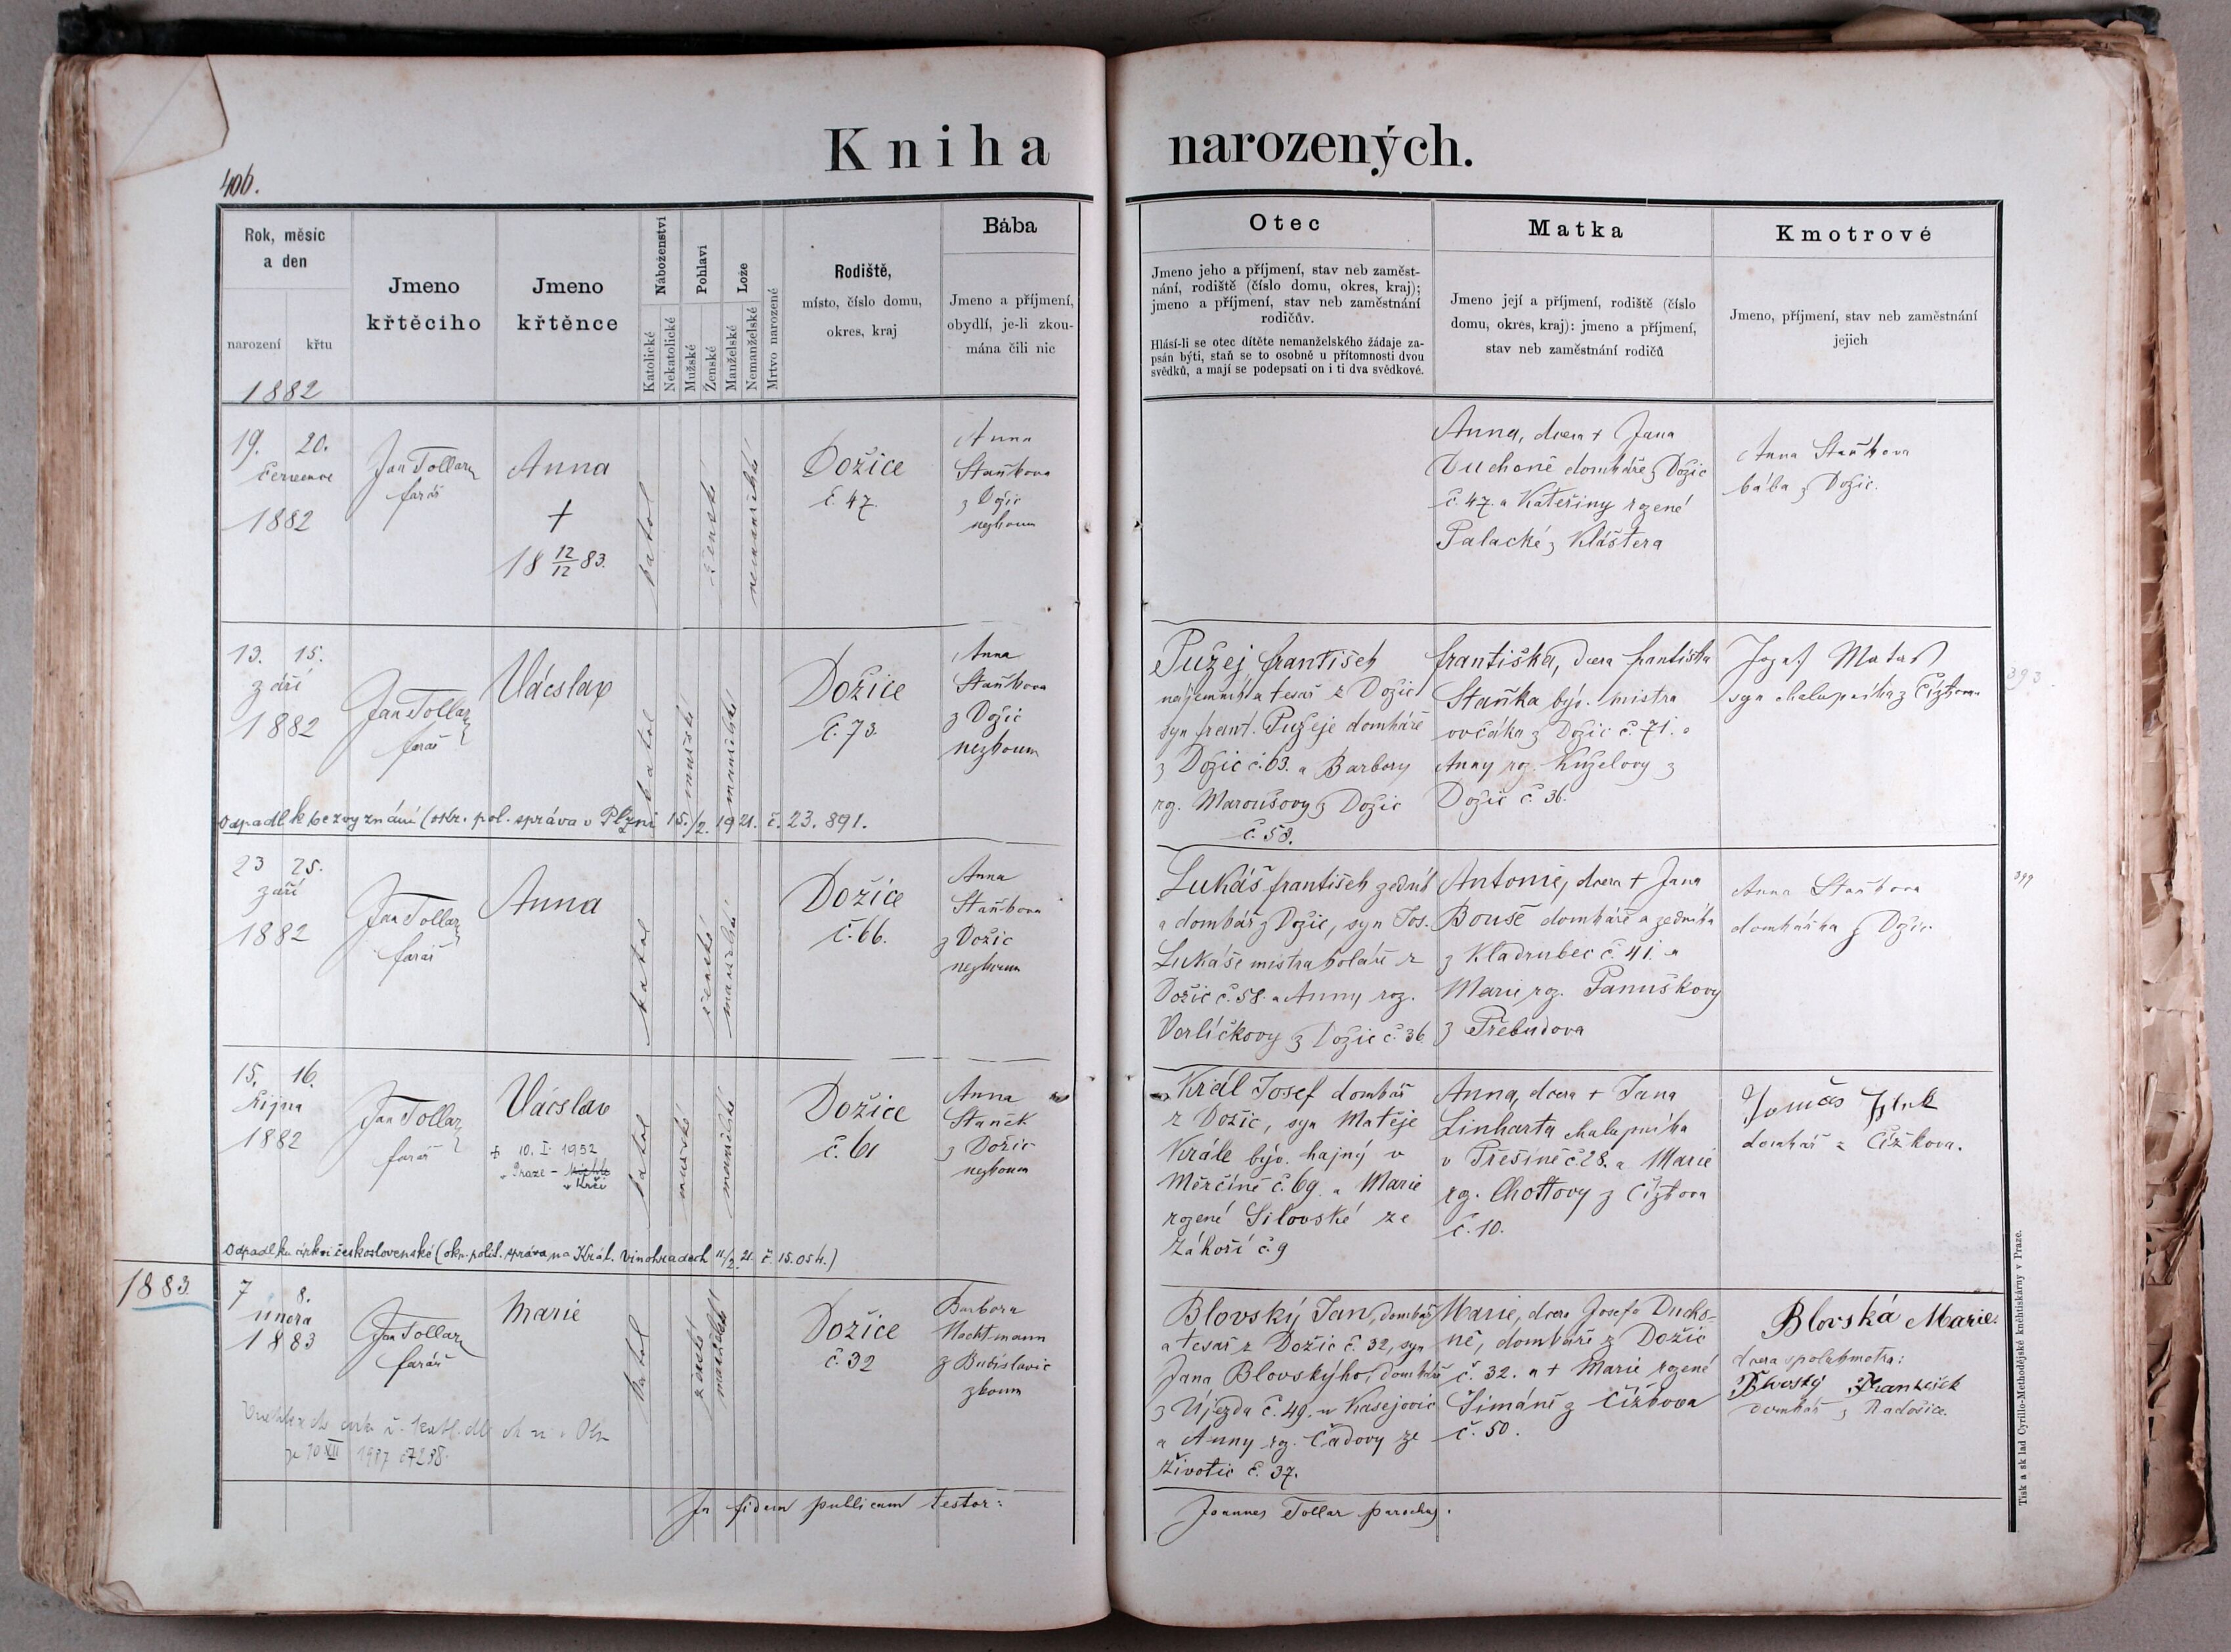 Kniha narozených.
406.
Rok, měsíc
a den
narození křtu
1882
Jmeno
křtěcího
Jmeno
křtěnce
Náboženství
Katolické
Nekatolické
Pohlaví
Mužské
Ženské
Lože
Manželské
Nemanželské
Mrtvo narozené
Rodiště,
místo, číslo domu,
okres, kraj
Bába
Jmeno a příjmení,
obydlí, je-li zkou-
mána čili nic
Otec
Jmeno jeho a příjmení, stav neb zaměst-
nání, rodiště (číslo domu, okres, kraj);
jmeno a příjmení, stav neb zaměstnání
rodičův.
Hlásí-li se otec dítěte nemanželského žádaje za-
psán býti, staň se to osobně u přítomnosti dvou
svědků, a mají se podepsati on i ti dva svědkové.
Matka
Jmeno její a příjmení, rodiště (číslo
domu, okres, kraj): jmeno a příjmení,
stav neb zaměstnání rodičů
Kmotrové
Jmeno, příjmení, stav neb zaměstnání
jejich
19. 20.
července
1882
Jan Tollar
farář
Anna
†
18 12/12 83.
katol
ženské
nemanželské
Dožice
č. 47.
Anna
Staňkova
z Dožic
nezkoum
Anna, dcera † Jana
Duchoně domkáře z Dožic
č. 47. a Kateřiny rozené
Palacké z Kláštera
Anna Staňkova
bába z Dožic.
13. 15.
září
1882
Jan Tollar
farář
Václav
katol
mužské
manželské
Dožice
č. 73.
Anna
Staňkova
z Dožic
nezkoum
Pužej František
nájemník a tesař z Dožic
syn Frant. Pužeje domkáře
z Dožic č. 63. a Barbory
rz. Maroušovy z Dožic
č. 58.
Františka, dcera Františka
Staňka býv. mistra
ovčáka z Dožic č. 71. a
Anny roz. Kuželovy z
Dožic č. 36.
Jozef Mataš
syn chalupníka z Čížkova
393.
Odpadl k bezvyznání (okr. pol. správa v Plzni 15./2. 1921. č. 23.891.
23 25.
září
1882
Jan Tollar
farář
Anna
katol
ženské
manželské
Dožice
č. 66.
Anna
Staňkova
z Dožic
nezkoum
Lukáš František zedník
a domkář z Dožic, syn Jos.
Lukáše mistra koláře z
Dožic č. 58. a Anny roz.
Vorlíčkovy z Dožic č. 36
Antonie, dcera † Jana
Bouše domkáře a zedníka
z Kladrubec č. 41. a
Marie rz. Panuškovy
z Třebudova
Anna Staňkova
domkářka z Dožic
399
15. 16.
října
1882
Jan Tollar
farář
Václav
† 10. I. 1952
v Praze -
v Krči
katol
mužské
manželské
Dožice
č. 61
Anna
Staněk
z Dožic
nezkoum
Král Josef domkář
z Dožic, syn Matěje
Krále býv. hajný v
Měrčíně č. 69. a Marie
rozené Silovské ze
Záhoří č. 9
Anna, dcera † Jana
Linharta chalupníka
v Třešíně č. 28. a Marie
rz. Chottovy z Čížkova
č. 10.
Tomáš
domkář z Čížkova.
Odpadl ku církvi československé (okr. polit. správa na Král. Vinohradech 11/2. 21. č. 15.054.)
1883.
7 8.
února
1883
Jan Tollar
farář
Marie
katol
ženské
manželské
Dožice
č. 32
Barbora
Wachtmann
z Budislavic
zkoum
Blovský Jan, domkář
a tesař z Dožic č. 32, syn
Jana Blovskýho, domkáře
z Újezda č. 49. u Kasejovic
a Anny rz. Čadovy ze
Životic č. 37.
Marie, dcera Josefa Ducho-
ně, domkáře z Dožic
č. 32. a † Marie rozené
Šimáně z Čížkova
č. 50.
Blovská Marie.
dcera spolukmotra:
Blovský František
domkář z Radošic.
In fidem publicam testor:
Joannes Tollar parochus.
Tisk a sklad Cyrillo-Methodějské kněhtiskárny v Praze.